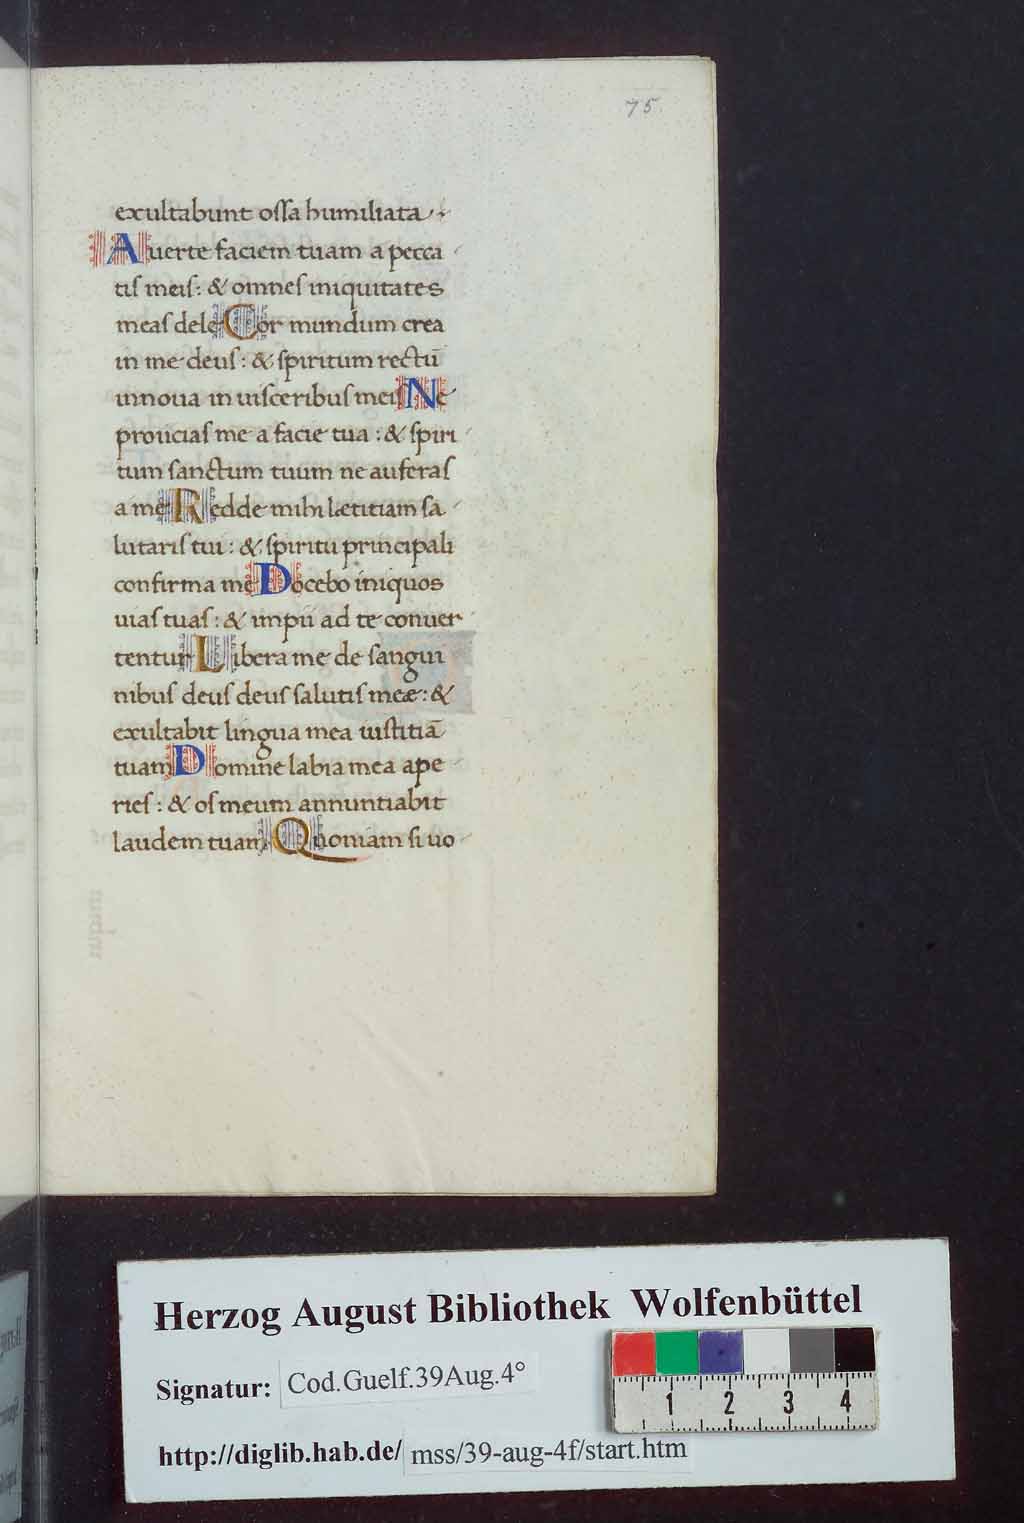 75
exultabunt ossa humiliata
Auerte faciem tuam a pecca
tis meis: & omnes iniquitates
meas dele Cor mundum crea
in me deus: & spiritum rectū
innoua in uisceribus meis Ne
proiicias me a facie tua: & spiri
tum sanctum tuum ne auferas
a me Redde mihi lætitiam sa
lutaris tui: & spiritu principali
confirma me Docebo iniquos
uias tuas: & impii ad te conuer
tentur Libera me de sangui
nibus deus deus salutis meæ: &
exultabit lingua mea iustitiā
tuam Domine labia mea ape
ries: & os meum annuntiabit
laudem tuam Quoniam si uo
Herzog August Bibliothek Wolfenbüttel
Signatur: Cod.Guelf.39Aug.4°
1 2 3 4
http://diglib.hab.de/ mss/39-aug-4f/start.htm